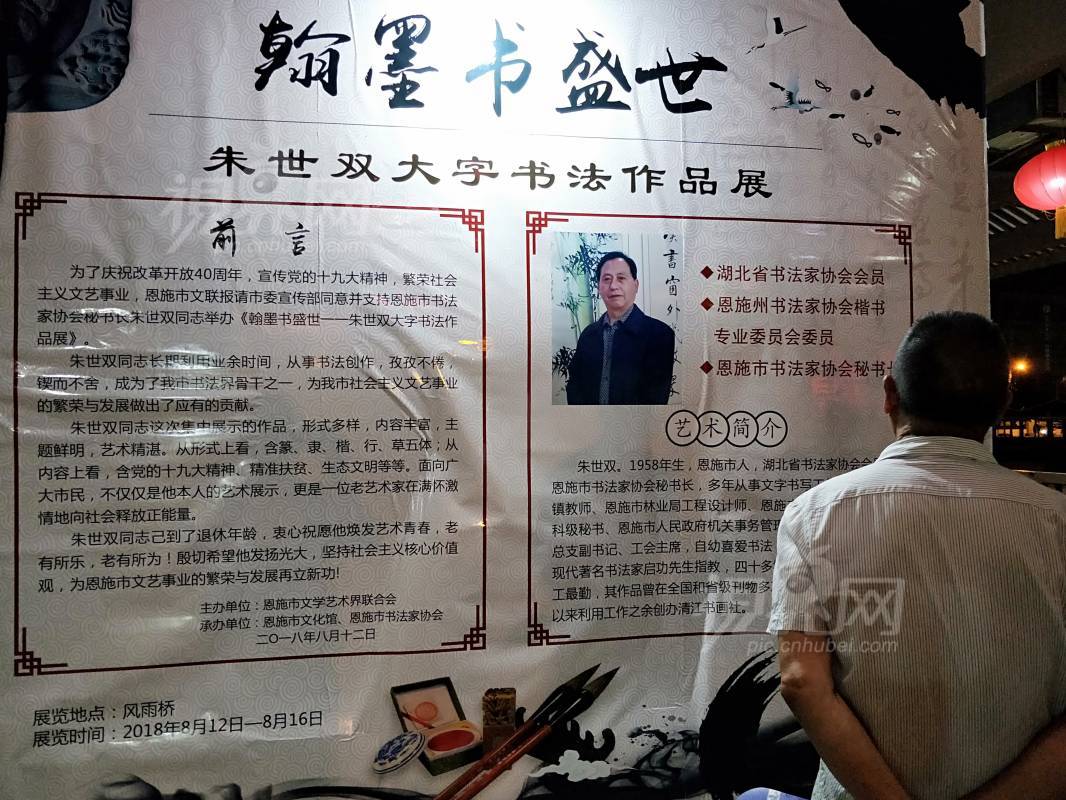 翰墨书盛世
朱世双大字书法作品展
前言
为了庆祝改革开放40周年，宣传党的十九大精神，繁荣社会
主义文艺事业，恩施市文联报请市委宣传部同意并支持恩施市书法
家协会秘书长朱世双同志举办《翰墨书盛世——朱世双大字书法作
品展》。
朱世双同志长期利用业余时间，从事书法创作，孜孜不倦，
锲而不舍，成为了我市书法界骨干之一，为我市社会主义文艺事业
的繁荣与发展做出了应有的贡献。
朱世双同志这次集中展示的作品，形式多样，内容丰富，主
题鲜明，艺术精湛。从形式上看，含篆、隶、楷、行、草五体；从
内容上看，含党的十九大精神、精准扶贫、生态文明等等。面向广
大市民，不仅仅是他本人的艺术展示，更是一位老艺术家在满怀激
情地向社会释放正能量。
朱世双同志己到了退休年龄，衷心祝愿他焕发艺术青春，老
有所乐，老有所为！殷切希望他发扬光大，坚持社会主义核心价值
观，为恩施市文艺事业的繁荣与发展再立新功!
主办单位：恩施市文学艺术界联合会
承办单位：恩施市文化馆、恩施市书法家协会
二〇一八年八月十二日
展览地点：风雨桥
展览时间：2018年8月12日—8月16日
◆湖北省书法家协会会员
◆恩施州书法家协会楷书
专业委员会委员
◆恩施市书法家协会秘书
艺术简介
朱世双。1958年生，恩施市人，湖北省书法家协会会
恩施市书法家协会秘书长，多年从事文字书写
镇教师、恩施市林业局工程设计师、恩施
科级秘书、恩施市人民政府机关事务管理
总支副书记、工会主席，自幼喜爱书法
现代著名书法家启功先生指教，四十多
工最勤，其作品曾在全国和省级刊物多
以来利用工作之余创办清江书画社。
视界网
pic.cnhubei.com